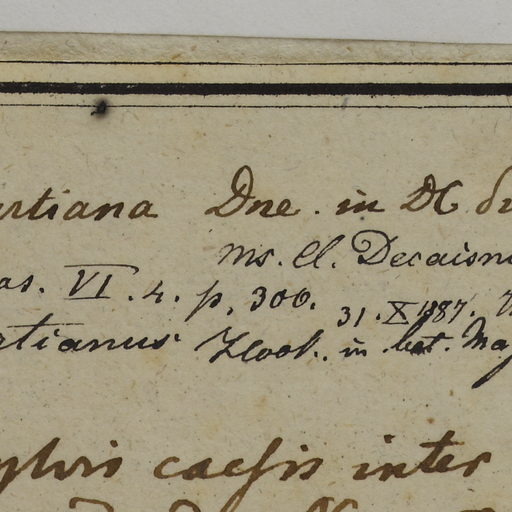 artiana Dne. in DC
Ms. Cl. Decaisn
as. VI. 4. p. 306. 31. X 1887.
rtianus Hook. in bot. Mag
ylvis caesis inter